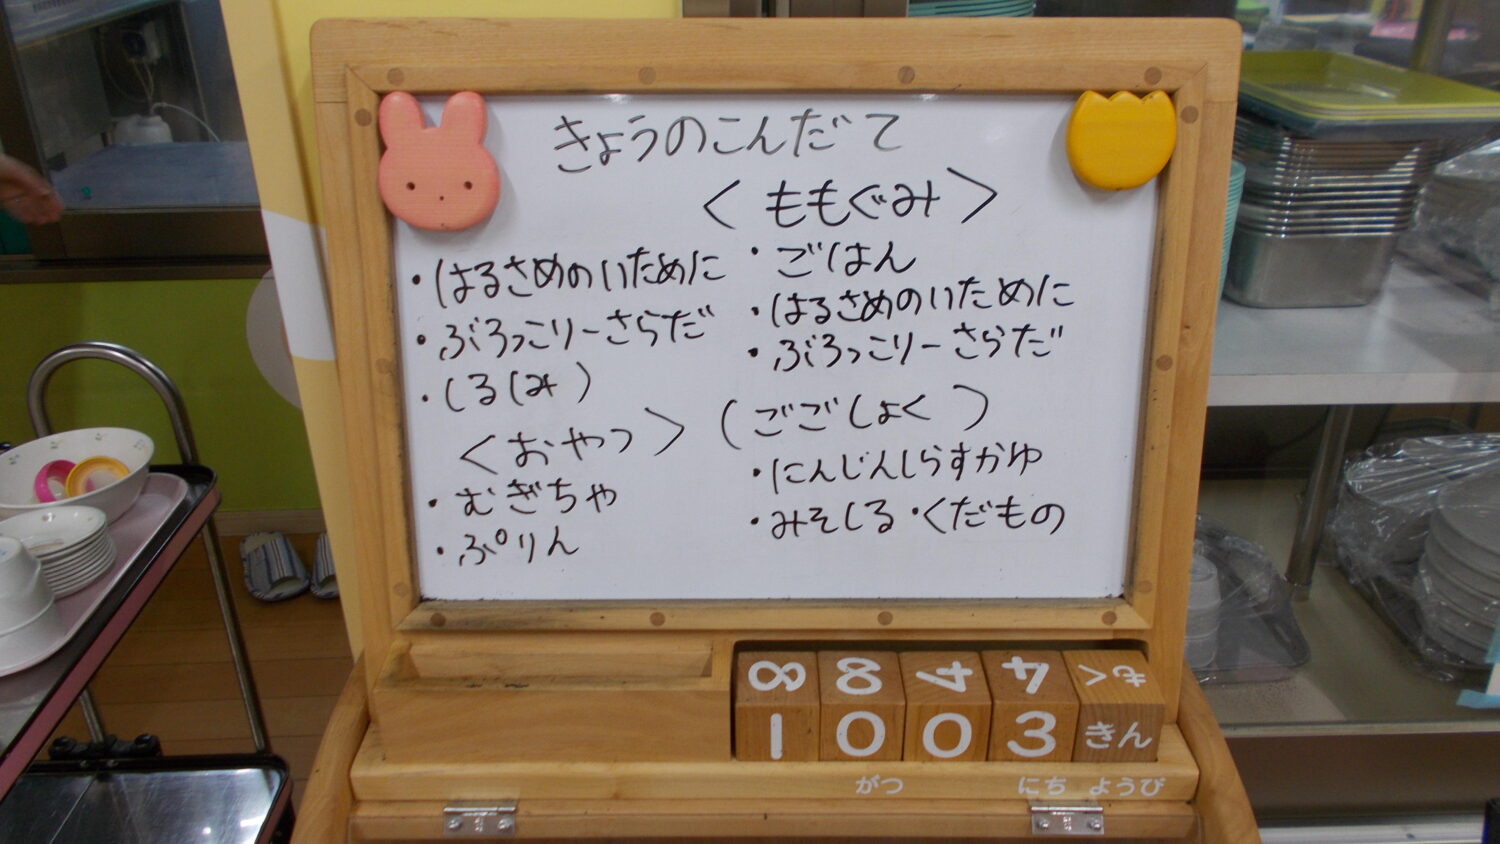 きょうのこんだて
・はるさめのいために
・ぶろっこりーさらだ
・しるしみ)
<おやつ>
・むぎちゃ
・ぷりん
<ももぐみ>
・ごはん
・はるさめのいために
・ぶろっこりーさらだ
(ごごしょく)
・にんじんしらすかゆ
・みそしる・くだもの
8 8 4 4 もく
1 0 0 3 きん
がつ にち ようび